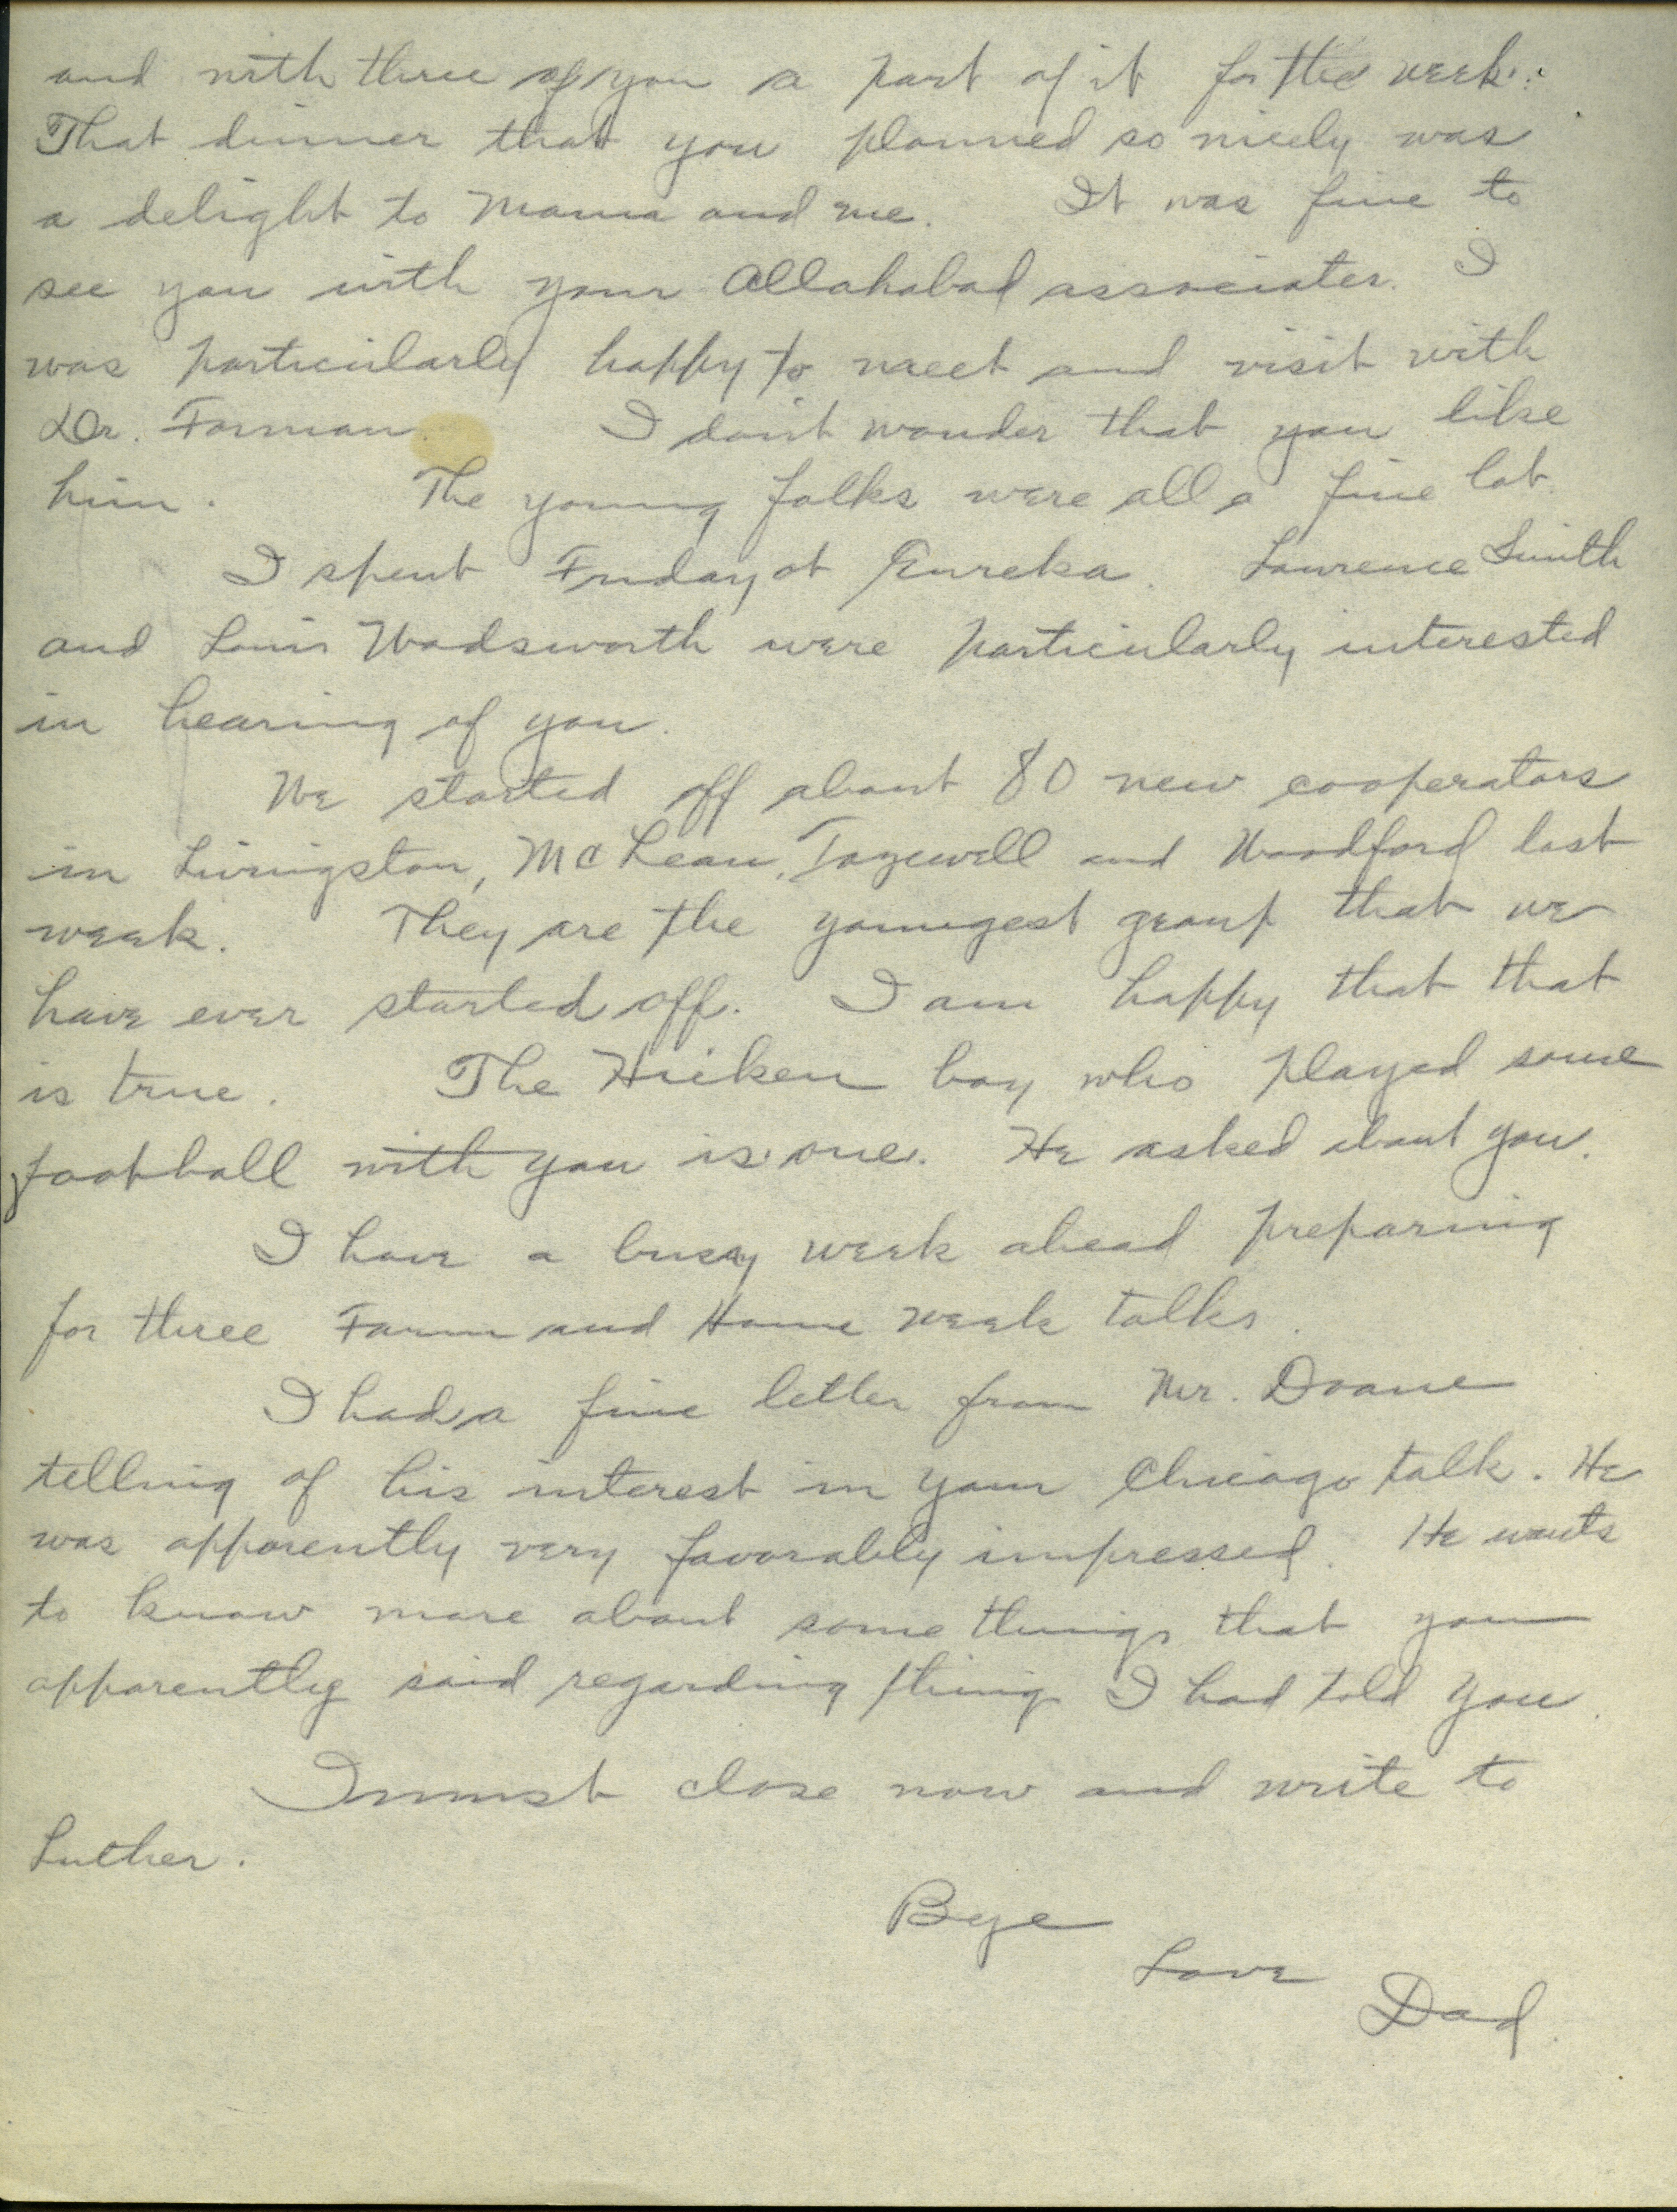 and with three of you a part of it for the week.
That dinner that you planned so nicely was
a delight to Mama and me. It was fine to
see you with your Allahabad associates. I
was particularly happy to meet and visit with
Dr. Forman. I don't wonder that you like
him. The young folks were all a fine lot.
I spent Friday at Eureka. Lawrence Smith
and Louis Wadsworth were particularly interested
in hearing of you.
We started off about 80 new cooperators
in Livingston, McLean, Tazewell and Woodford last
week. They are the youngest group that we
have ever started off. I am happy that that
is true. The boy who played some
football with you is one. He asked about you.
I have a busy week ahead preparing
for three Farm and Home week talks.
I had a fine letter from Mr. Doane
telling of his interest in your Chicago talk. He
was apparently very favorably impressed. He wants
to know more about some things that you
apparently said regarding things I had told you.
I must close now and write to
Luther.
Bye
Love
Dad.